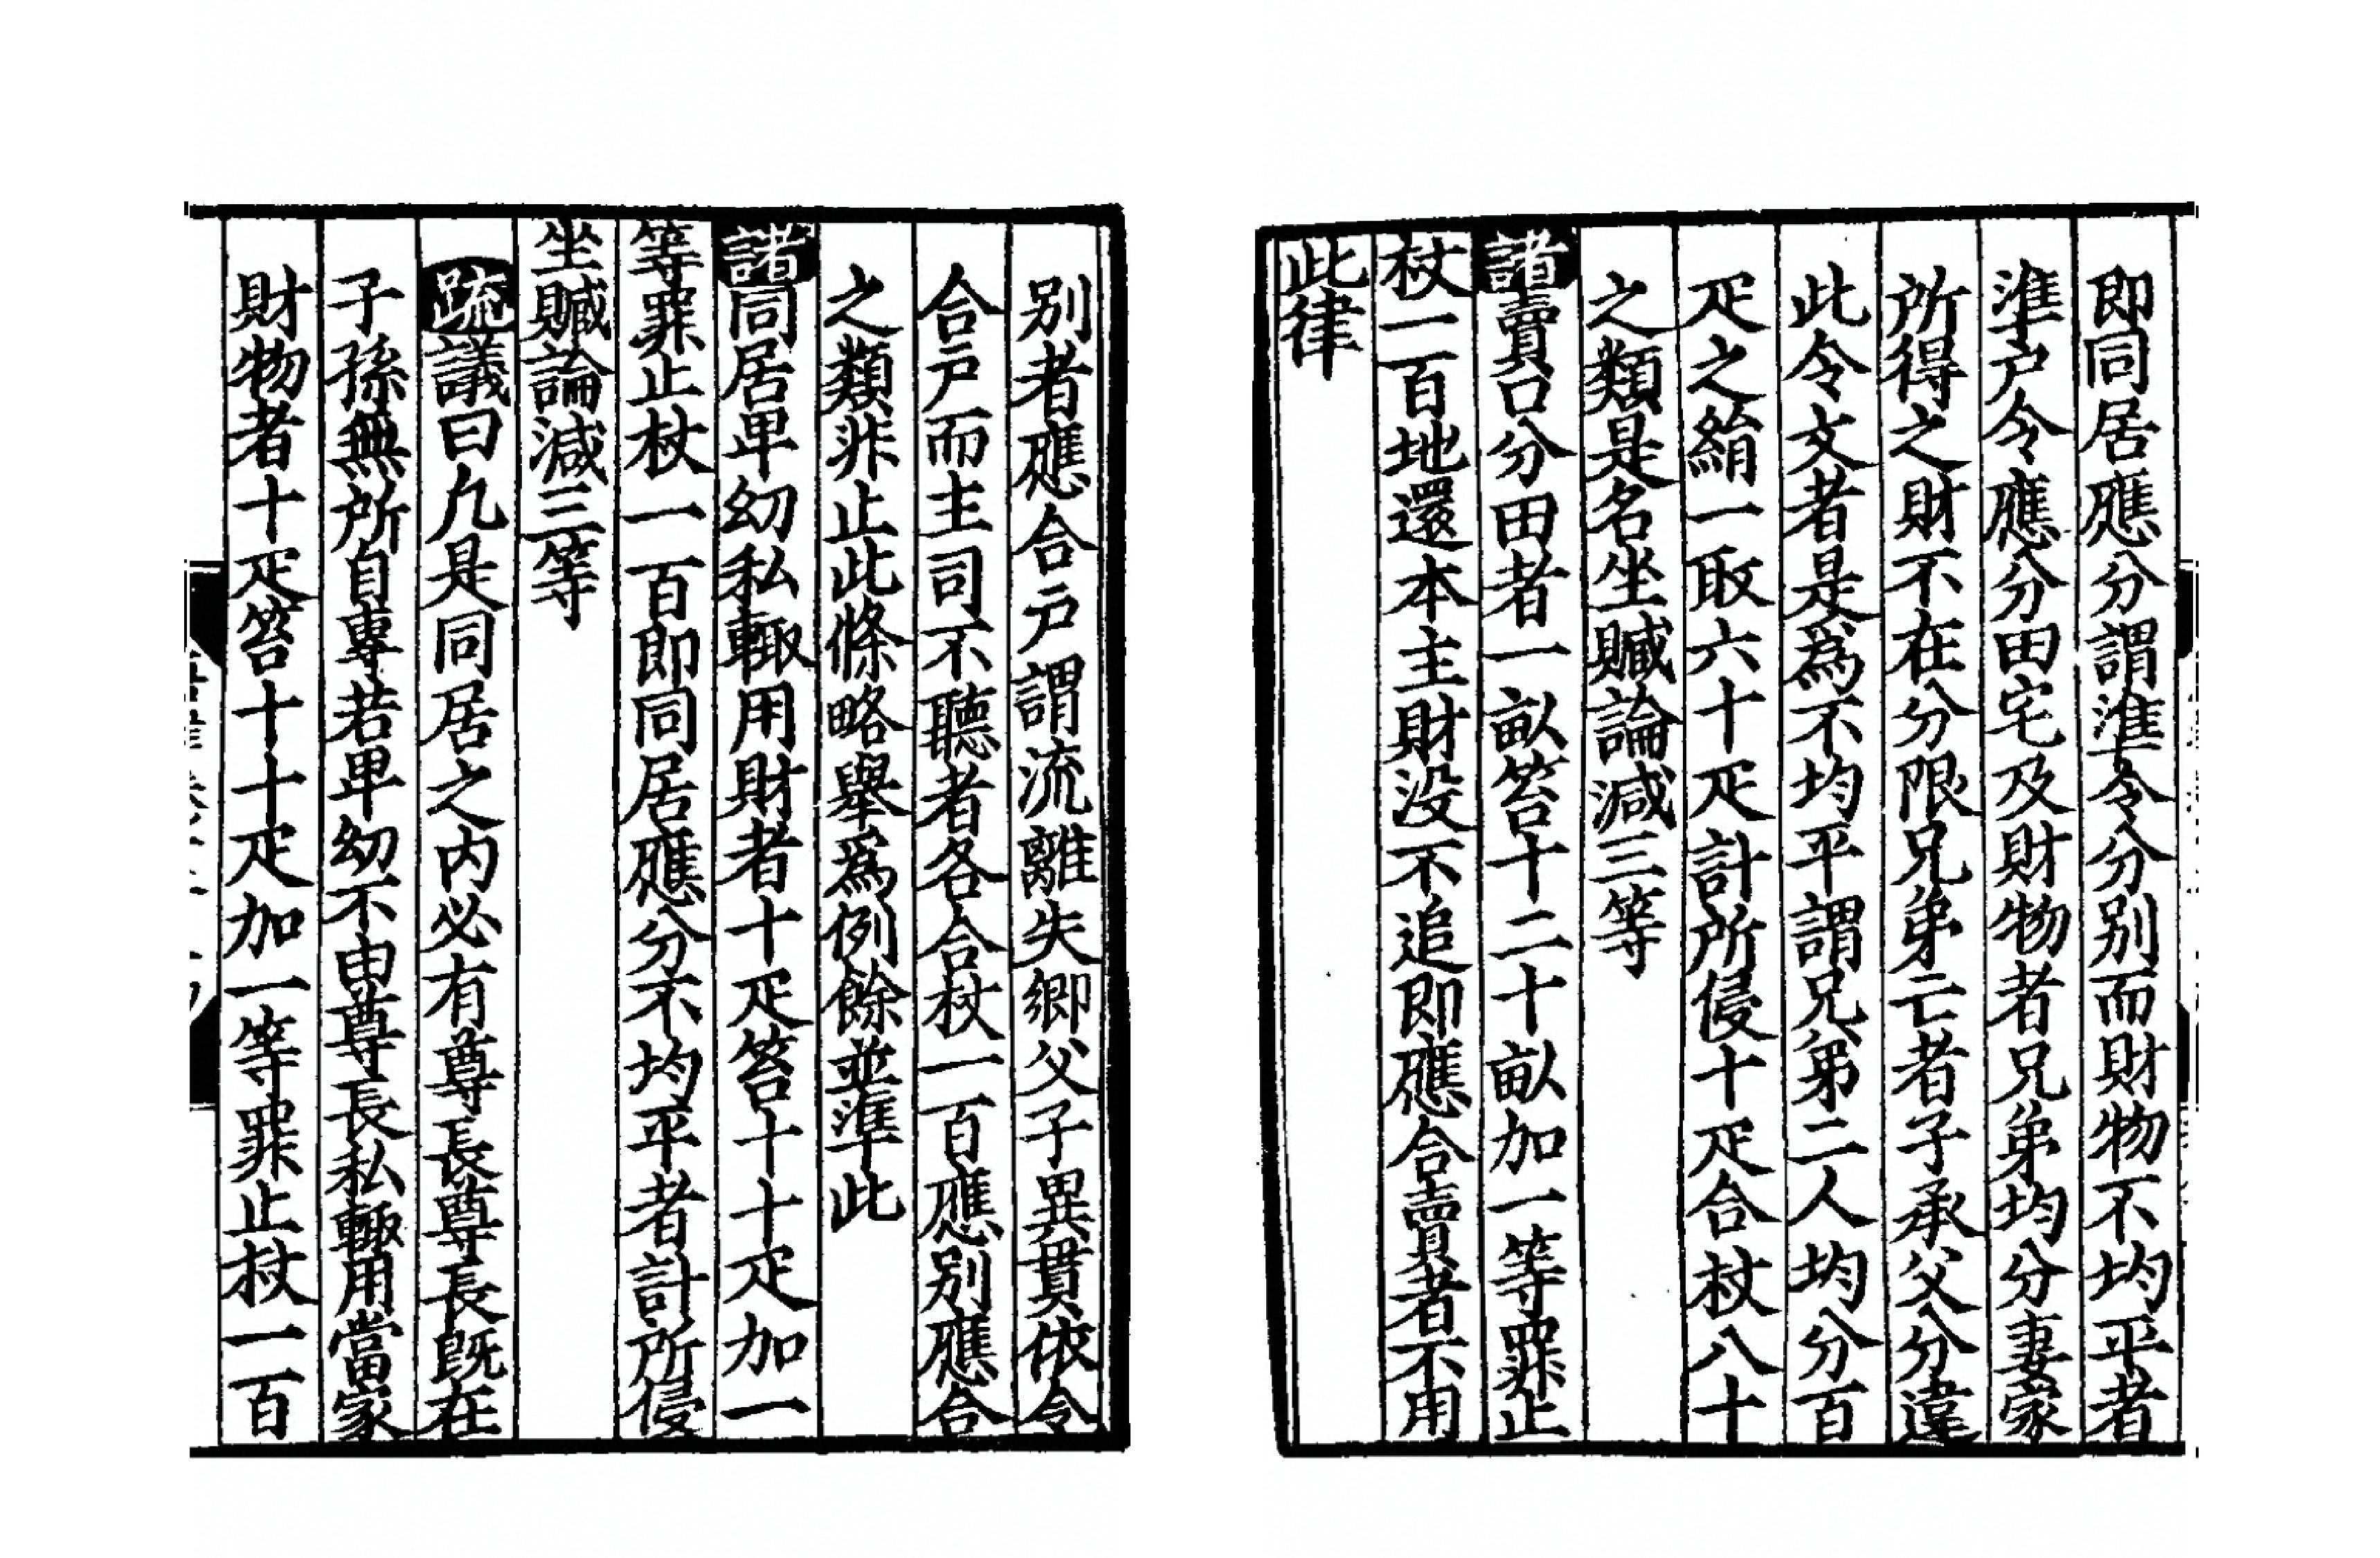 別者應合戶謂流離失鄉父子異貫依令
合戶而主司不聽者各合杖一百應別應合
之類非止此條略舉爲例餘並準此
諸同居卑幼私輒用財者十疋笞十十疋加一
等罪止杖一百即同居應分不均平者計所侵
坐贓論減三等
疏議曰凡是同居之内必有尊長尊長既在
子孫無所自專若卑幼不由尊長私輒用當家
財物者十疋笞十十疋加一等罪止杖一百
即同居應分謂準令分別而財物不均平者
準戶令應分田宅及財物者兄弟均分妻家
所得之財不在分限兄弟亡者子承父分違
此令文者是爲不均平謂兄弟二人均分百
疋之絹一取六十疋計所侵十疋合杖八十
之類是名坐贓論減三等
諸賣口分田者一畝笞十二十畝加一等罪止
杖一百地還本主財没不追即應合賣者不用
此律